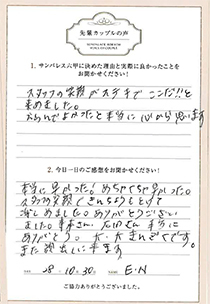 先輩カップルの声
1. サンパレス六甲に決めた理由と実際に良かったことを
お聞かせください!
スタッフの笑顔がステキでここだ!!と
決めました。
えらんでよかったと本当に心から思います
2. 今日一日のご感想をお聞かせください!
本当に良かった。めちゃくちゃ良かった。
スタッフの笑顔できんちょうもとけて
楽しめました。ありがとうござい
ました。
本当に
ありがとう。
また遊びに来ます
DATE 28.10.30. NAME E.N
ご協力ありがとうございました。